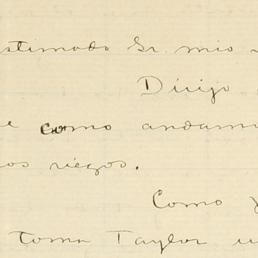 stimado Sr. mio
Dirijo
e como andam
os riegos.
Como
toma Taylor u